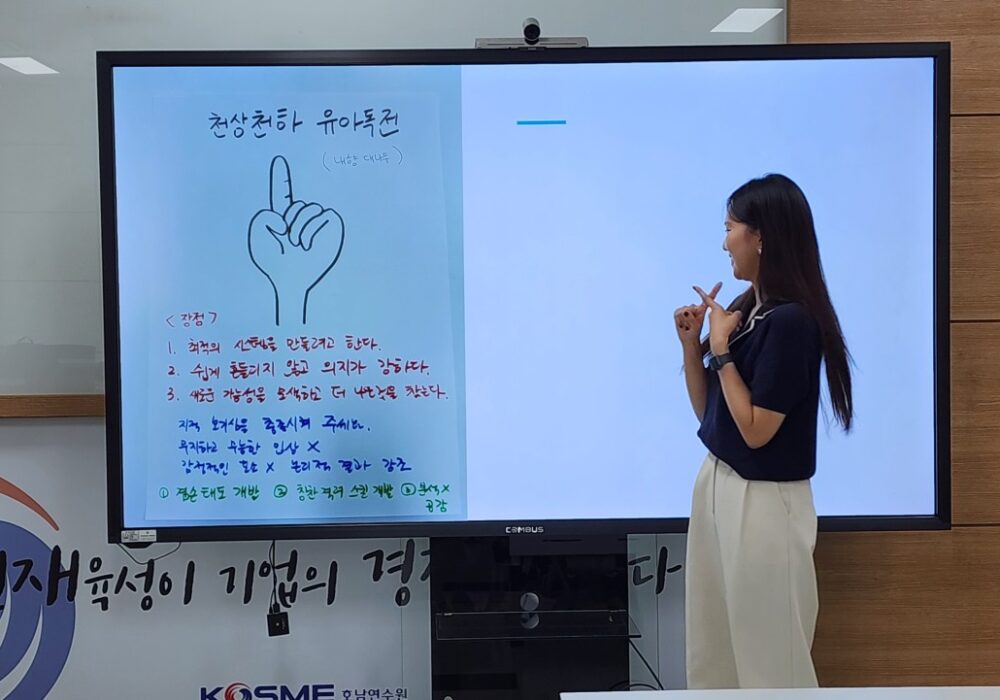 천상천하 유아독전
(내향 대나무)
<장점>
1. 최적의 선택을 만들려고 한다.
2. 쉽게 흔들리지 않고 의지가 강하다.
3. 새로운 가능성을 모색하고 더 나은 것을 찾는다.
지적 호기심을 충족시켜 주세요.
무지하고 무능한 인상 X
감정적인 호소 X 논리적 결과 강조
① 겸손 태도 개발 ② 칭찬 격려 스킬 개발 ③ 분석X
공감
COMBUS
재육성이 기업의
다
KOSME 호남연수원